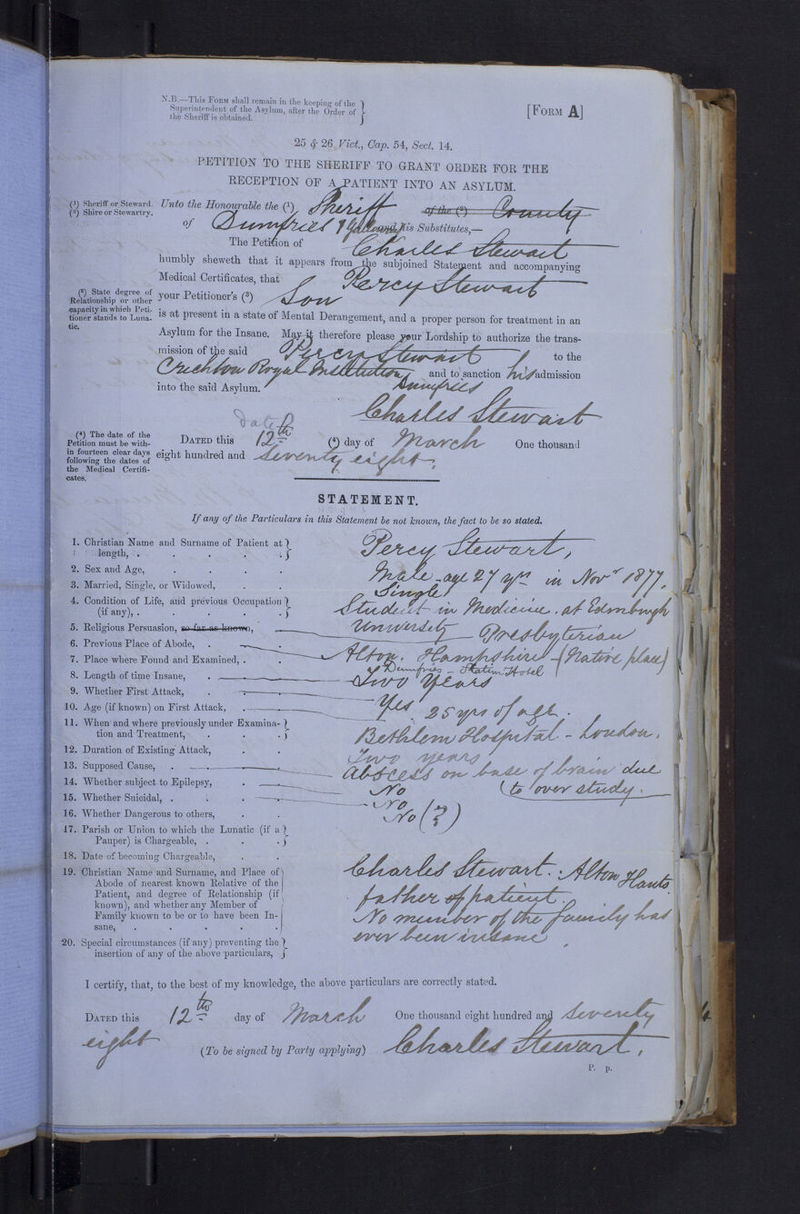 N.B.—This Form shall remain in the keeping of the
Superintendent of the Asylum, after the Order of
the Sheriff is obtained.
[Form A]
25 & 26 Vict., Cap. 54, Sect. 14.
PETITION TO THE SHERIFF TO GRANT ORDER FOR THE
RECEPTION OF A PATIENT INTO AN ASYLUM.
(1) Sheriff or Steward.
(2) Shire or Stewartry.
Unto the Honourable the (1) Sheriff of the (2) County
of Dumfries & Galloway and his Substitutes,—
The Petition of Charles Stewart
humbly sheweth that it appears from the subjoined Statement and accompanying
Medical Certificates, that Percy Stewart
(3) State degree of
Relationship or other
capacity in which Peti-
tioner stands to Luna-
tic.
your Petitioner's (3) Son
is at present in a state of Mental Derangement, and a proper person for treatment in an
Asylum for the Insane. May it therefore please your Lordship to authorize the trans-
mission of the said Percy Stewart to the
Crichton Royal Institution, and to sanction his admission
into the said Asylum. Dumfries
Charles Stewart
(4) The date of the
Petition must be with-
in fourteen clear days
following the dates of
the Medical Certifi-
cates.
date
Dated this 12th (4) day of March One thousand
eight hundred and Seventy eight.
STATEMENT.
If any of the Particulars in this Statement be not known, the fact to be so stated.
1. Christian Name and Surname of Patient at
length, . Percy Stewart,
2. Sex and Age, Male - age 27 yrs in Novr 1877.
3. Married, Single, or Widowed, Single
4. Condition of Life, and previous Occupation
(if any), . Student in Medicine. at Edinburgh
University
5. Religious Persuasion, so far as known, Presbyterian
6. Previous Place of Abode, . Alton. Hampshire - (Native place)
7. Place where Found and Examined, . Dumfries - Station Hotel
8. Length of time Insane, . Two Years
9. Whether First Attack, Yes
10. Age (if known) on First Attack, 25 yrs of age.
11. When and where previously under Examina-
tion and Treatment, Bethlem Hospital - London.
12. Duration of Existing Attack, Two years
13. Supposed Cause, . abscess on base of brain due
(to over study.
14. Whether subject to Epilepsy, No
15. Whether Suicidal, . No
16. Whether Dangerous to others, No (?)
17. Parish or Union to which the Lunatic (if a
Pauper) is Chargeable, .
18. Date of becoming Chargeable,
19. Christian Name and Surname, and Place of
Abode of nearest known Relative of the
Patient, and degree of Relationship (if
known), and whether any Member of
Family known to be or to have been In-
sane,
Charles Stewart. Alton Hants.
father of patient
No member of the family has
ever been insane
20. Special circumstances (if any) preventing the
insertion of any of the above particulars,
I certify, that, to the best of my knowledge, the above particulars are correctly stated.
Dated this 12th day of March One thousand eight hundred and Seventy
eight (To be signed by Party applying) Charles Stewart.
P. p.